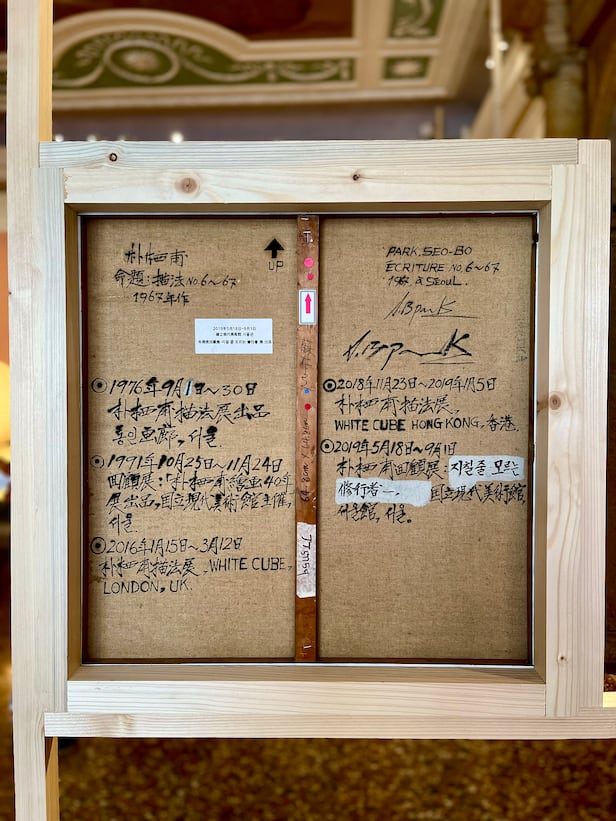 朴栖甫
命題:描法No.6~67
1967年作
UP
2019年5月18日~9月1日
1976年9月1日~30日
朴栖甫描法展出品
통인画廊, 서울
1991年10月25日~11月24日
回顧展:「朴栖甫繪画40年
展出品, 国立現代美術館主催,
서울
2016年1月15日~3月12日
朴栖甫描法展, WHITE CUBE,
LONDON, UK.
PARK, SEO-BO
ECRITURE No.6~67
À SEOUL.
2018年11月23日~2019年1月5日
朴栖甫描法展,
WHITE CUBE HONG KONG, 香港.
2019年5月18日~9月1日
朴栖甫回顧展: 지칠 줄 모르는
修行者—, 国立現代美術館,
서울館, 서울。